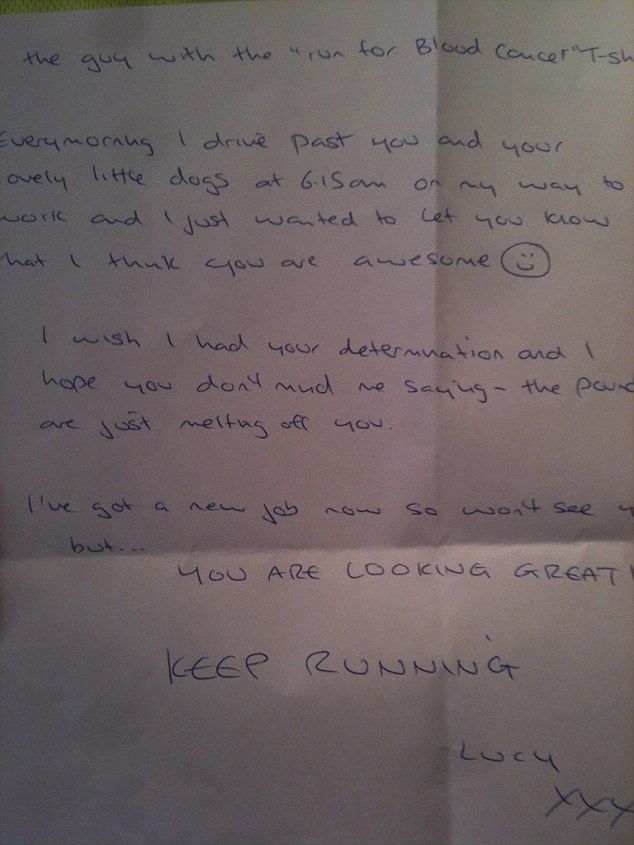 the guy with the "run for Blood Cancer" T-sh
Everymorning I drive past you and your
ovely little dogs at 6.15am on my way to
work and I just wanted to let you know
hat I think you are awesome
I wish I had your determination and I
hope you don't mind me saying - the pound
are just melting off you.
I've got a new job now so won't see y
but...
YOU ARE LOOKING GREAT!
KEEP RUNNING
LUCY
XXX